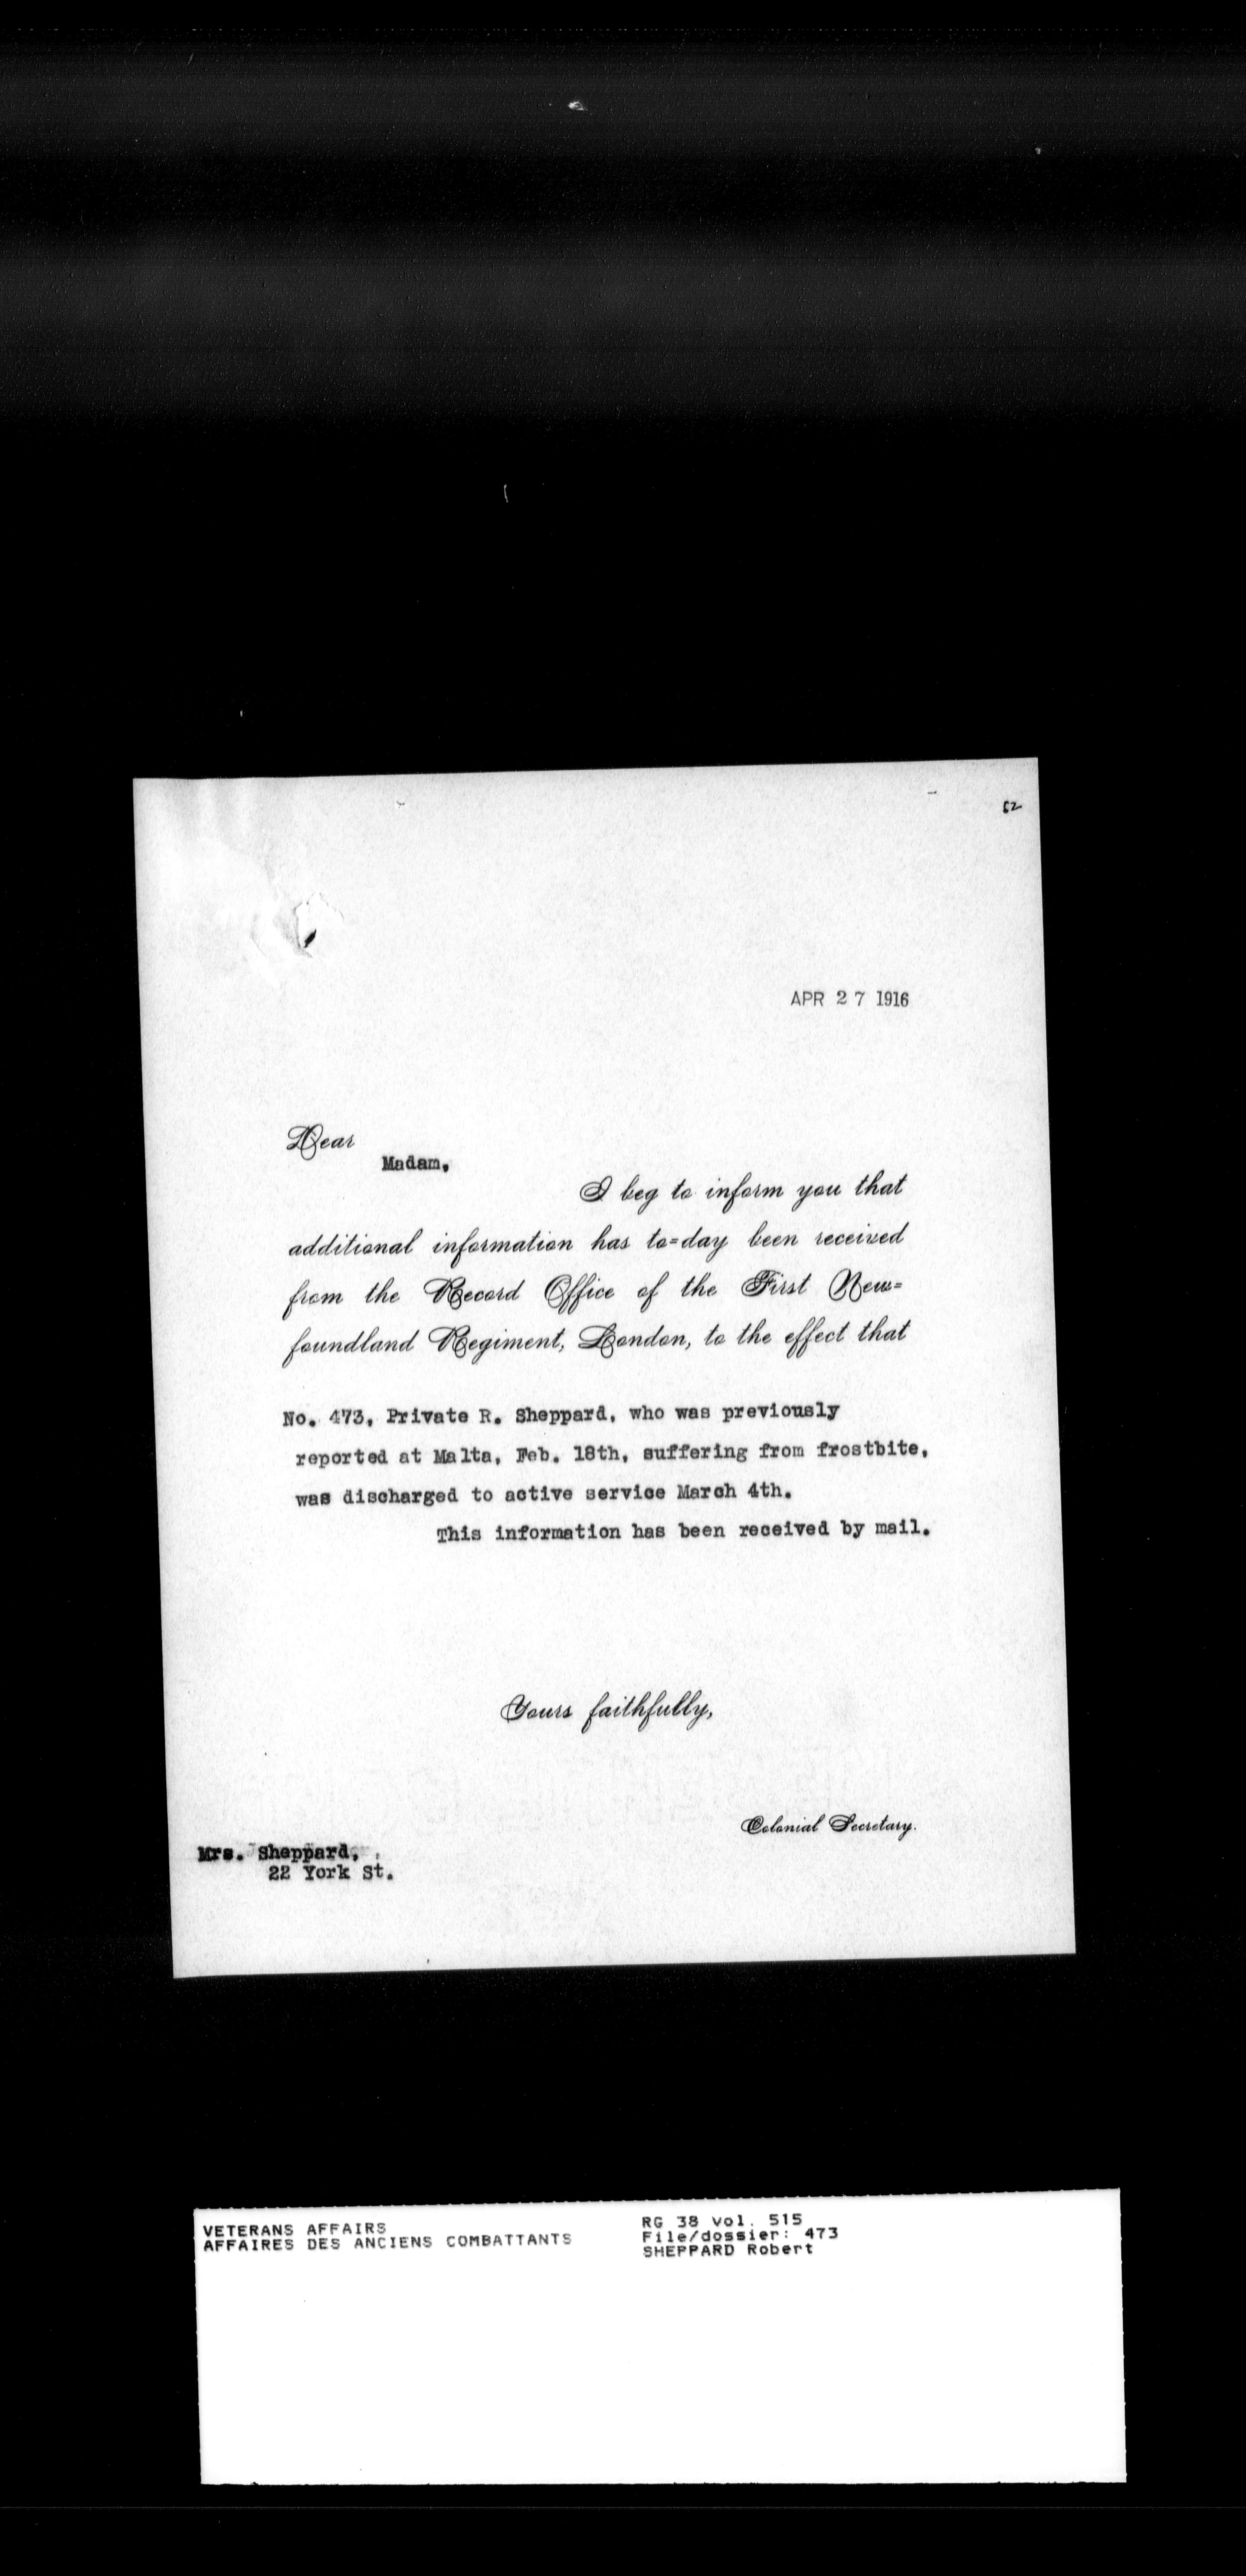 52
APR 27 1916
Dear
Madam,
I beg to inform you that
additional information has to=day been received
from the Record Office of the First New=
foundland Regiment, London, to the effect that
No. 473, Private R. Sheppard, who was previously
reported at Malta, Feb. 18th, suffering from frostbite,
was discharged to active service March 4th.
This information has been received by mail.
Yours faithfully,
Colonial Secretary.
Mrs. Sheppard,
22 York St.
VETERANS AFFAIRS
AFFAIRES DES ANCIENS COMBATTANTS
RG 38 vol. 515
File/dossier: 473
SHEPPARD Robert